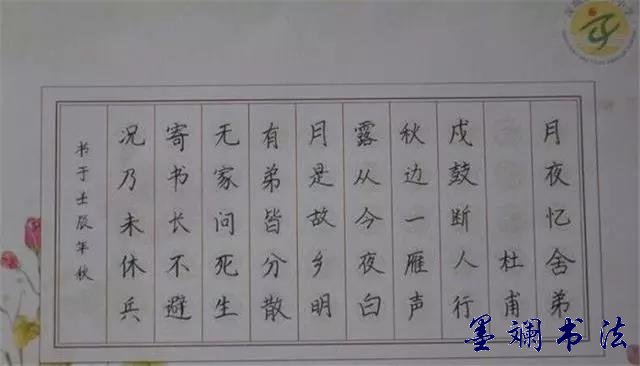 月夜忆舍弟
杜甫
戍鼓断人行
秋边一雁声
露从今夜白
月是故乡明
有弟皆分散
无家问死生
寄书长不避
况乃未休兵
书于壬辰年秋
墨斓书法